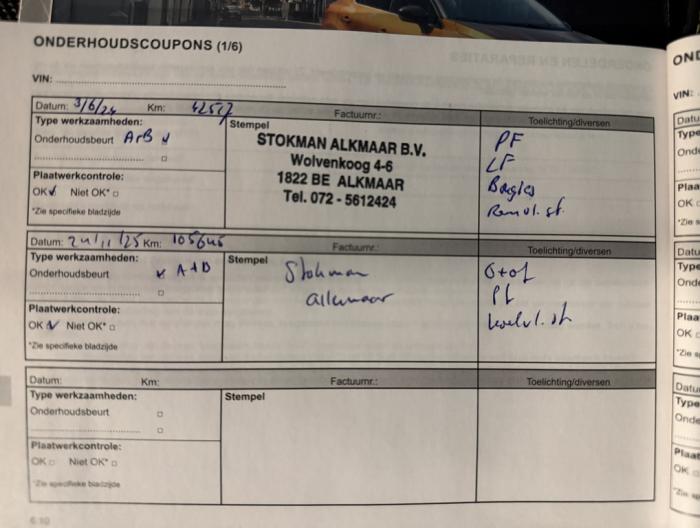 ONDERHOUDSCOUPONS (1/6)
VIN:
Datum: 3/6/24 Km: Factuurnr.: Toelichting/diversen
Type werkzaamheden:
Stempel
Onderhoudsbeurt
STOKMAN ALKMAAR B.V.
Wolvenkoog 4-6
1822 BE ALKMAAR
Tel. 072 - 5612424
Plaatwerkcontrole:
OK Niet OK*
*Zie specifieke bladzijde
PF
LF
Remvl. st.
Datum: 24/11/25 Km: 105645 Factuurnr.: Toelichting/diversen
Type werkzaamheden:
Stempel
Onderhoudsbeurt
Stokman
alkmaar
Plaatwerkcontrole:
OK Niet OK*
*Zie specifieke bladzijde
Datum: Km: Factuurnr.: Toelichting/diversen
Type werkzaamheden:
Stempel
Onderhoudsbeurt
Plaatwerkcontrole:
OK Niet OK*
*Zie specifieke bladzijde
6.10
OND
VIN:
Datu
Type
Onde
Plaa
OK
Datu
Type
Onde
Plaa
OK
Datu
Type
Onde
Plaat
OK